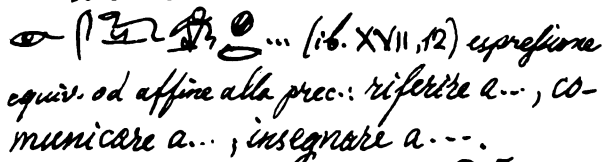 ... (ib. XVII, 12) espressione
equiv. od affine alla prec.: riferire a..., co-
municare a..., insegnare a...